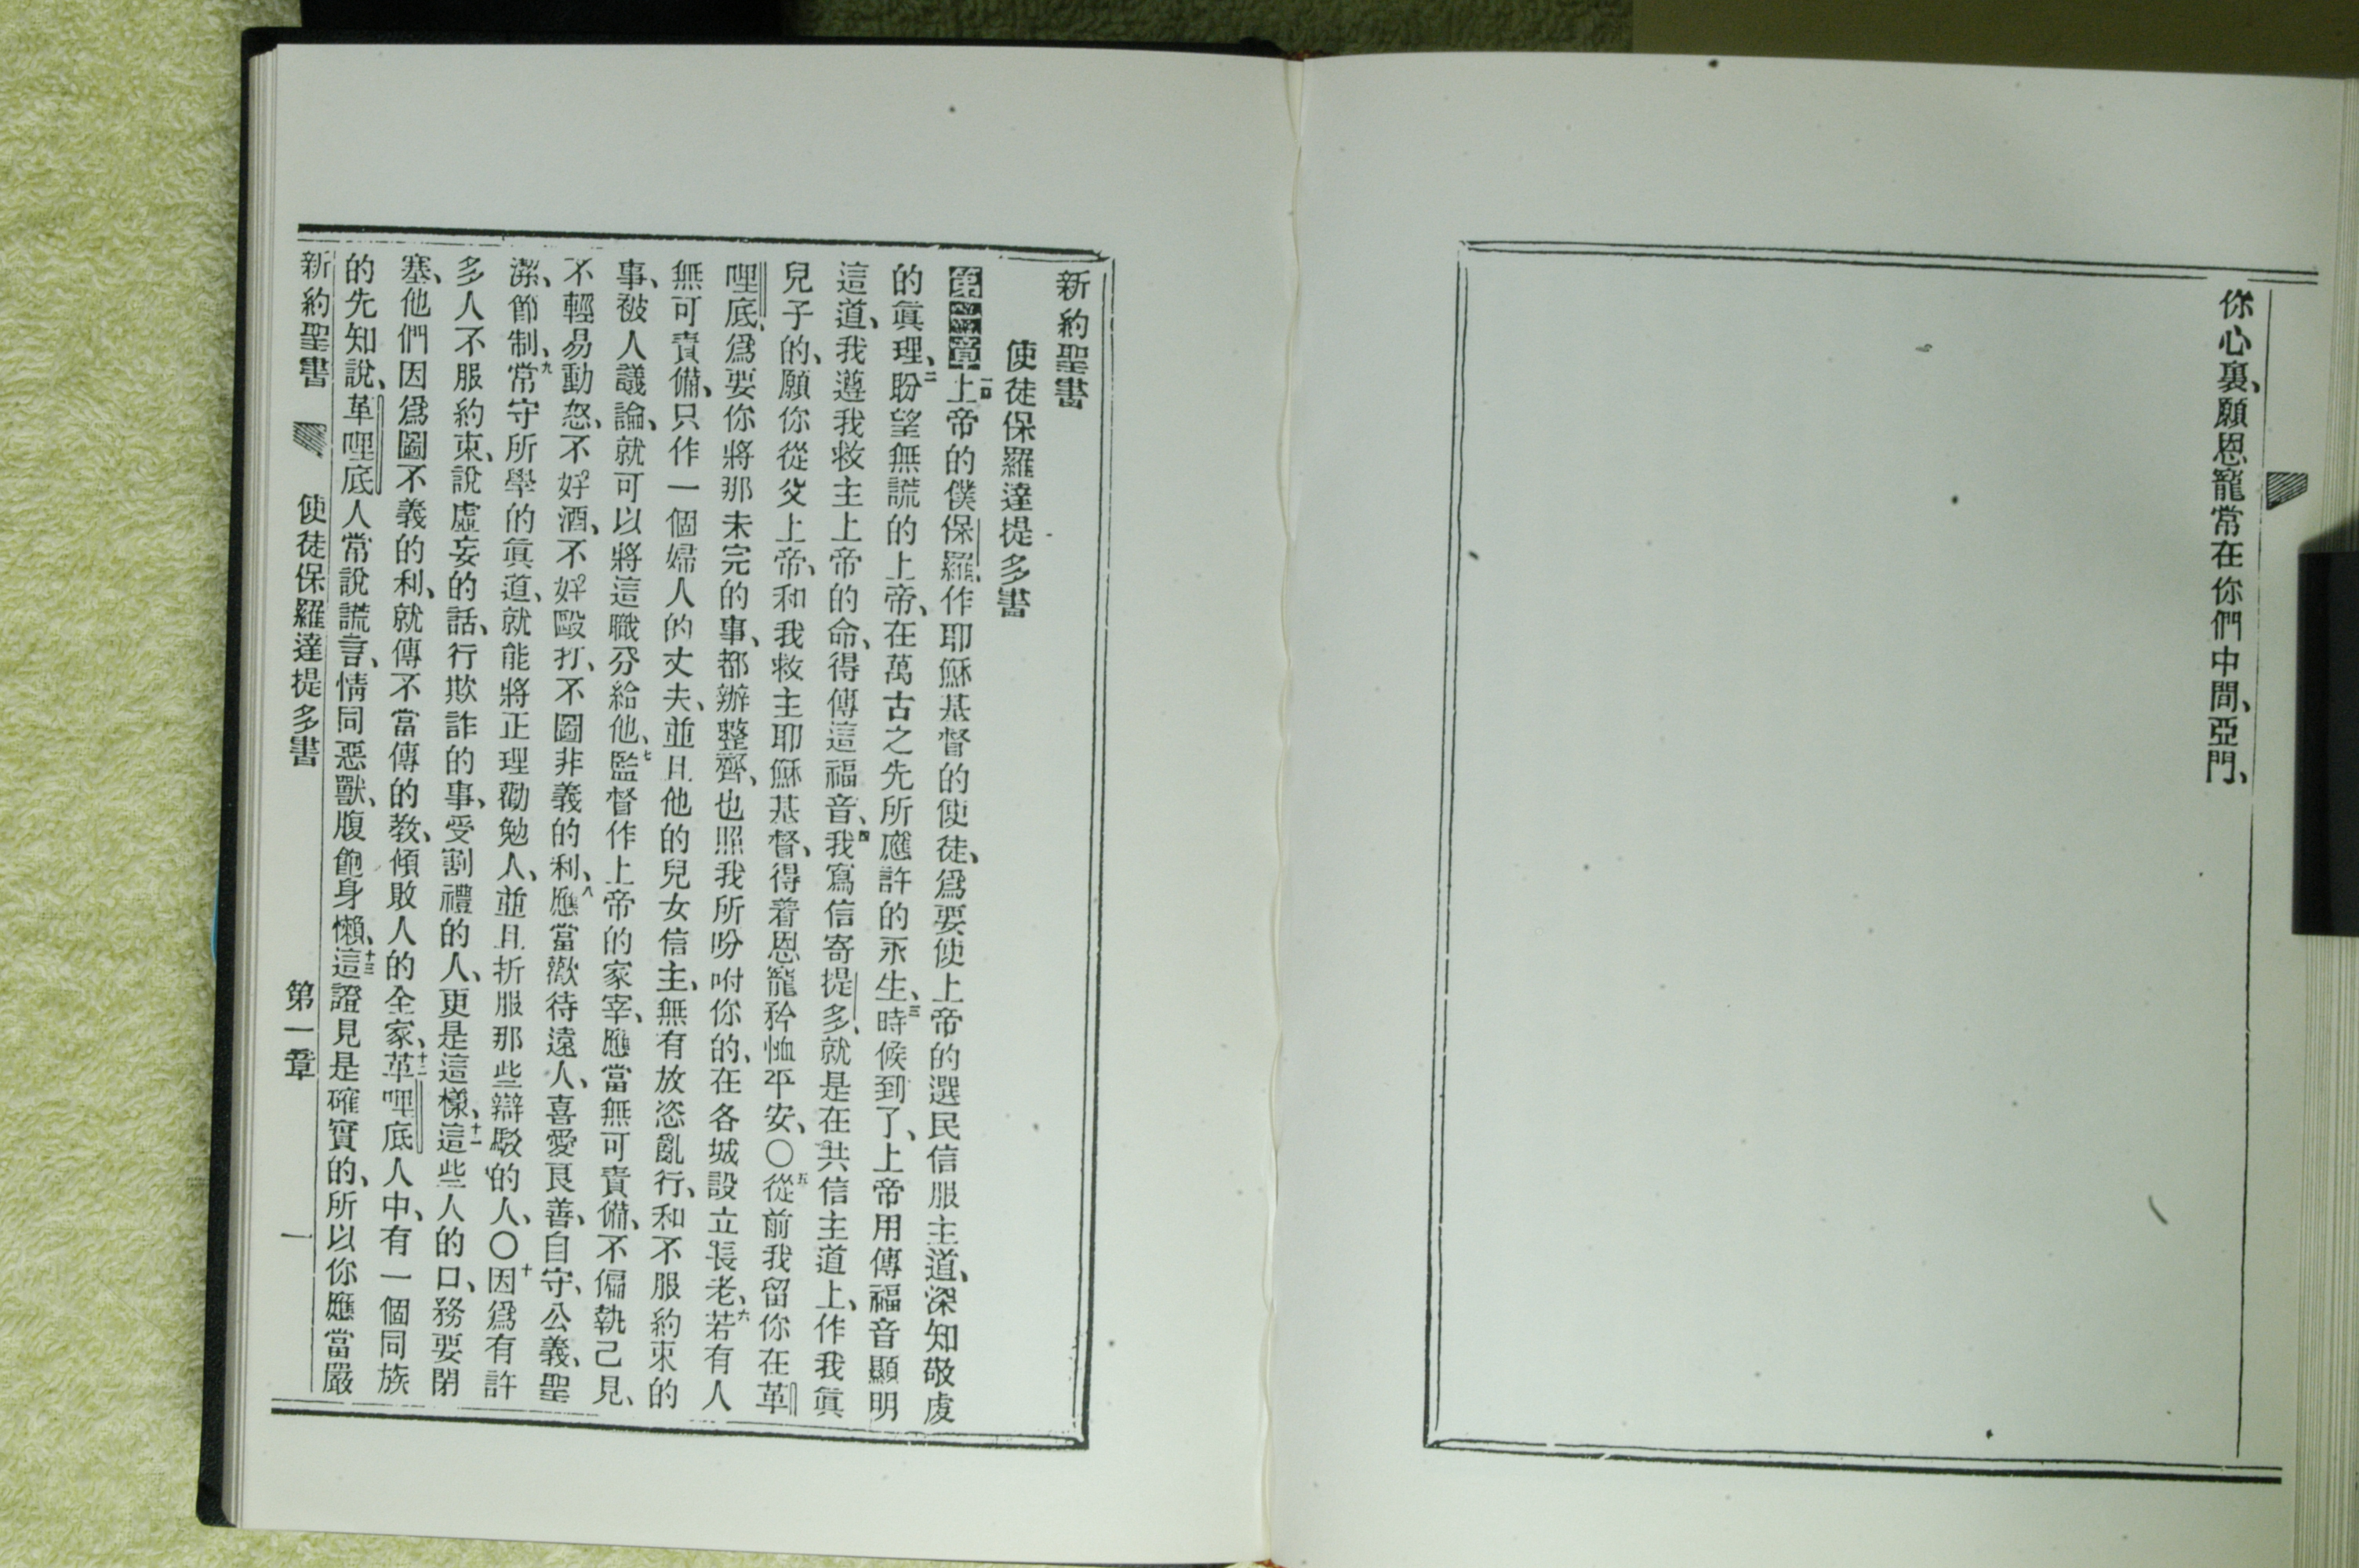 你心裏、願恩寵常在你們中間、亞門、
新約聖書
使徒保羅達提多書
第一章一上帝的僕保羅、作耶穌基督的使徒、爲要使上帝的選民信服主道、深知敬虔
的眞理、二盼望無謊的上帝、在萬古之先所應許的永生、三時候到了、上帝用傳福音顯明
這道、我遵我救主上帝的命、得傳這福音、四我寫信寄提多、就是在共信主道上、作我眞
兒子的、願你從父上帝、和我救主耶穌基督、得着恩寵矜恤平安、〇五從前我留你在革
哩底、爲要你將那未完的事、都辦整齊、也照我所吩咐你的、在各城設立長老、六若有人
無可責備、只作一個婦人的丈夫、並且他的兒女信主、無有放恣亂行、和不服約束的
事、被人議論、就可以將這職分給他、七監督作上帝的家宰、應當無可責備、不偏執己見、
不輕易動怒、不好酒、不好毆打、不圖非義的利、八應當欵待遠人、喜愛良善、自守、公義、聖
潔、節制、九常守所學的眞道、就能將正理勸勉人、並且折服那些辯駁的人、〇十因爲有許
多人不服約束、說虛妄的話、行欺詐的事、受割禮的人、更是這樣、十一這些人的口、務要閉
塞、他們因爲圖不義的利、就傳不當傳的教、傾敗人的全家、十二革哩底人中、有一個同族
的先知說、革哩底人常說謊言、情同惡獸、腹飽身懶、十三這證見是確實的、所以你應當嚴
新約聖書 使徒保羅達提多書 第一章 一